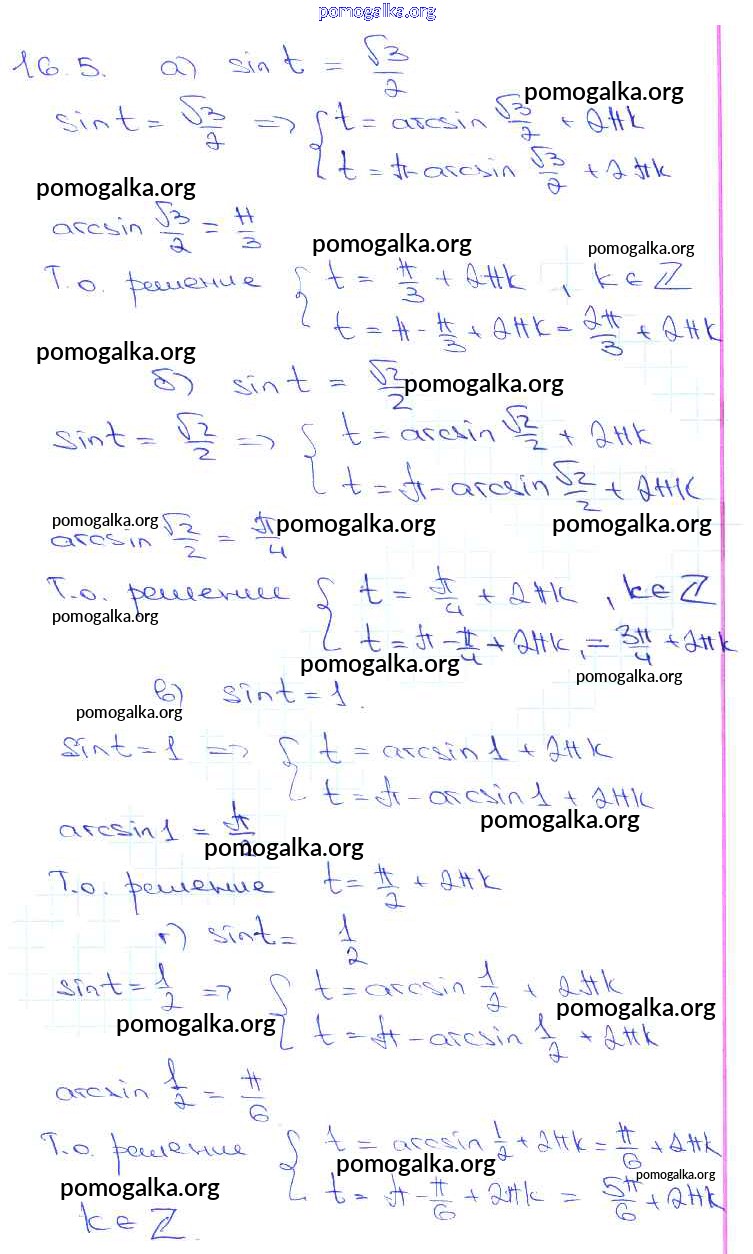 pomogalka.org
16.5. а) sin t = √3/2
pomogalka.org
sin t = √3/2 => { t = arcsin √3/2 + 2πk
t = π - arcsin √3/2 + 2πk
pomogalka.org
arcsin √3/2 = π/3
pomogalka.org pomogalka.org
Т.о. решение { t = π/3 + 2πk , k ∈ ℤ
t = π - π/3 + 2πk = 2π/3 + 2πk
pomogalka.org
б) sin t = √2/2 pomogalka.org
sin t = √2/2 => { t = arcsin √2/2 + 2πk
t = π - arcsin √2/2 + 2πk
pomogalka.org pomogalka.org pomogalka.org
arcsin √2/2 = π/4
Т.о. решение { t = π/4 + 2πk , k ∈ ℤ
pomogalka.org
t = π - π/4 + 2πk, = 3π/4 + 2πk
pomogalka.org pomogalka.org
в) sin t = 1.
pomogalka.org
sin t = 1 => { t = arcsin 1 + 2πk
t = π - arcsin 1 + 2πk
pomogalka.org
arcsin 1 = π/2
pomogalka.org
Т.о. решение t = π/2 + 2πk
г) sin t = 1/2
sin t = 1/2 => { t = arcsin 1/2 + 2πk
pomogalka.org pomogalka.org
t = π - arcsin 1/2 + 2πk
arcsin 1/2 = π/6
Т.о. решение { t = arcsin 1/2 + 2πk = π/6 + 2πk
pomogalka.org pomogalka.org
pomogalka.org
t = π - π/6 + 2πk = 5π/6 + 2πk
k ∈ ℤ.